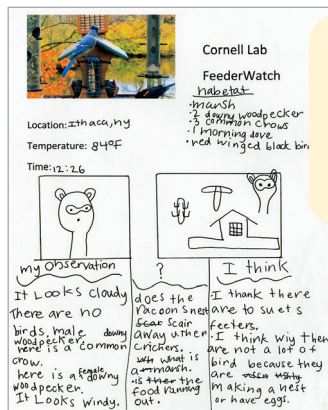 Cornell Lab
FeederWatch
habetat
•marsh
•2 downy woodpecker
•3 common crows
•1 morning dove
•red winged black bird
Location: Ithaca, ny
Temperature: 84°F
Time: 12:26
my observation
It Looks cloudy
There are no
birds, male downy
woodpecker.
here is a common
crow.
here is a female downy
woodpecker.
It Looks windy.
?
does the
racoons nest
scair
away uther
crichers.
what is
a marsh.
is ther the
food running
out.
I think
I thank there
are to suets
feeters.
•I think wiy ther
are not a lot of
bird because they
are
making a nest
or have eggs.